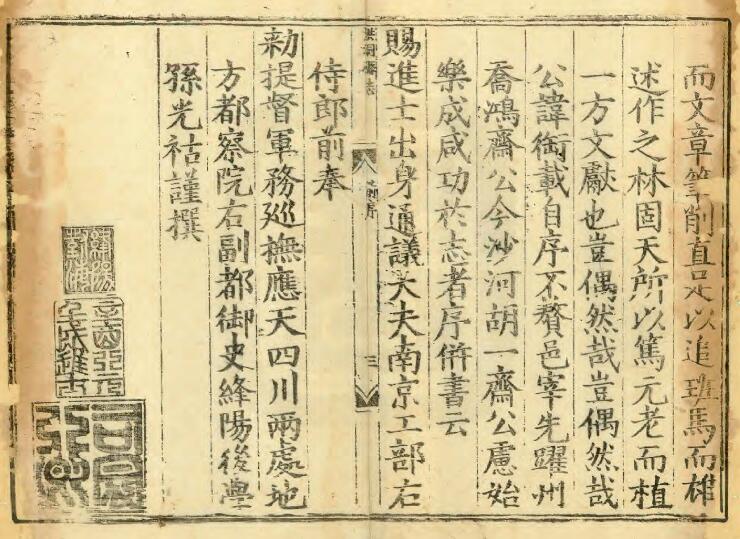 而文章筆削直足以追班馬而雄
述作之林固天所以篤元老而植
一方文獻也豈偶然哉豈偶然哉
公諱銜載自序不贅邑宰先躍州
喬鴻齋公今沙河胡一齋公慮始
樂成咸功於志者序倂書云
賜進士出身通議大夫南京工部右
前序 三
侍郎前奉
勑提督軍務巡撫應天四川兩處地
方都察院右副都御史絳陽後學
孫光祜謹撰
辛酉亞元
壬戌進士